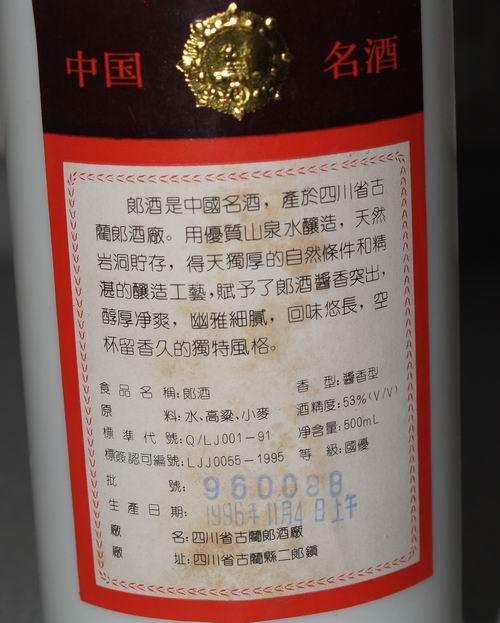 中国 名酒
郎酒是中國名酒，產於四川省古
藺郎酒廠。用優質山泉水釀造，天然
岩洞貯存，得天獨厚的自然條件和精
湛的釀造工藝，賦予了郎酒醬香突出，
醇厚凈爽，幽雅細膩，回味悠長，空
杯留香久的獨特風格。
食品名稱：郎酒 香型：醬香型
原料：水、高粱、小麥 酒精度：53%(V/V)
標準代號：Q/LJ001-91 净含量：500mL
標簽認可編號：LJJ0055-1995 等級：國優
批號：960088
生產日期：1996年11月4日上午
廠名：四川省古藺郎酒廠
廠址：四川省古藺縣二郎鎮